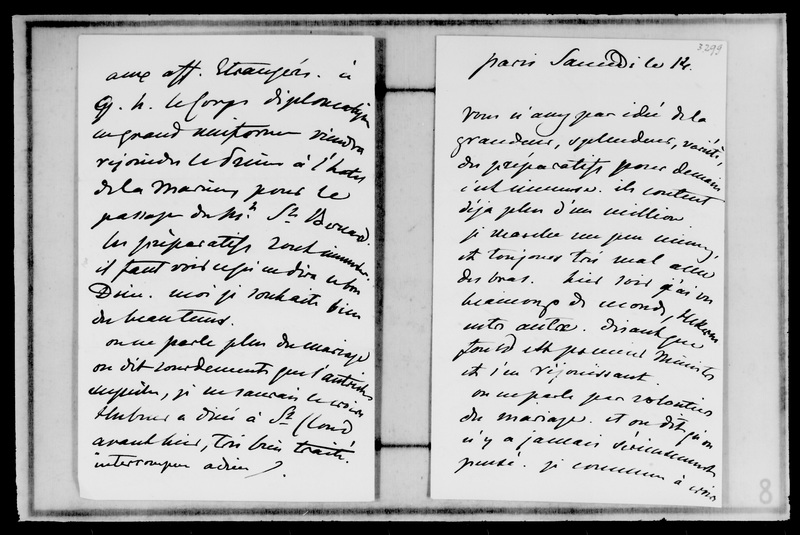 aux aff. Etrangér. à
9. h. le Corps diplomatique
en grand uniforme viendra
rejoindre le à l'hotel
de la Marine pour le
passage du Mt St Bernard.
les préparatifs sont immenses.
il faut voir ce qu'en dira le bon
Dieu. moi je souhaite bien
du beau tems.
on ne parle plus du mariage
on dit sourdement que l'autrichien
empêche, je ne saurais le croire
Hubner a diné à St Cloud
avant hier, très bien traité.
interrompue adieu
3299
paris Samedi le 14.
vous n'avez pas idée de la
grandeur, splendeur, variété,
des préparatifs pour demain
c'est immense. ils content
déja plus d'un million.
je marche un peu mieux,
et toujours très mal avec
des bras. hier soir j'ai vu
beaucoup de monde,
entre autres. disant que
est premier Ministre
et s'en réjouissant.
on ne parle pas volontiers
du mariage. et on dit qu'on
n'y a jamais sérieusement
pensé. je commence à croire
8